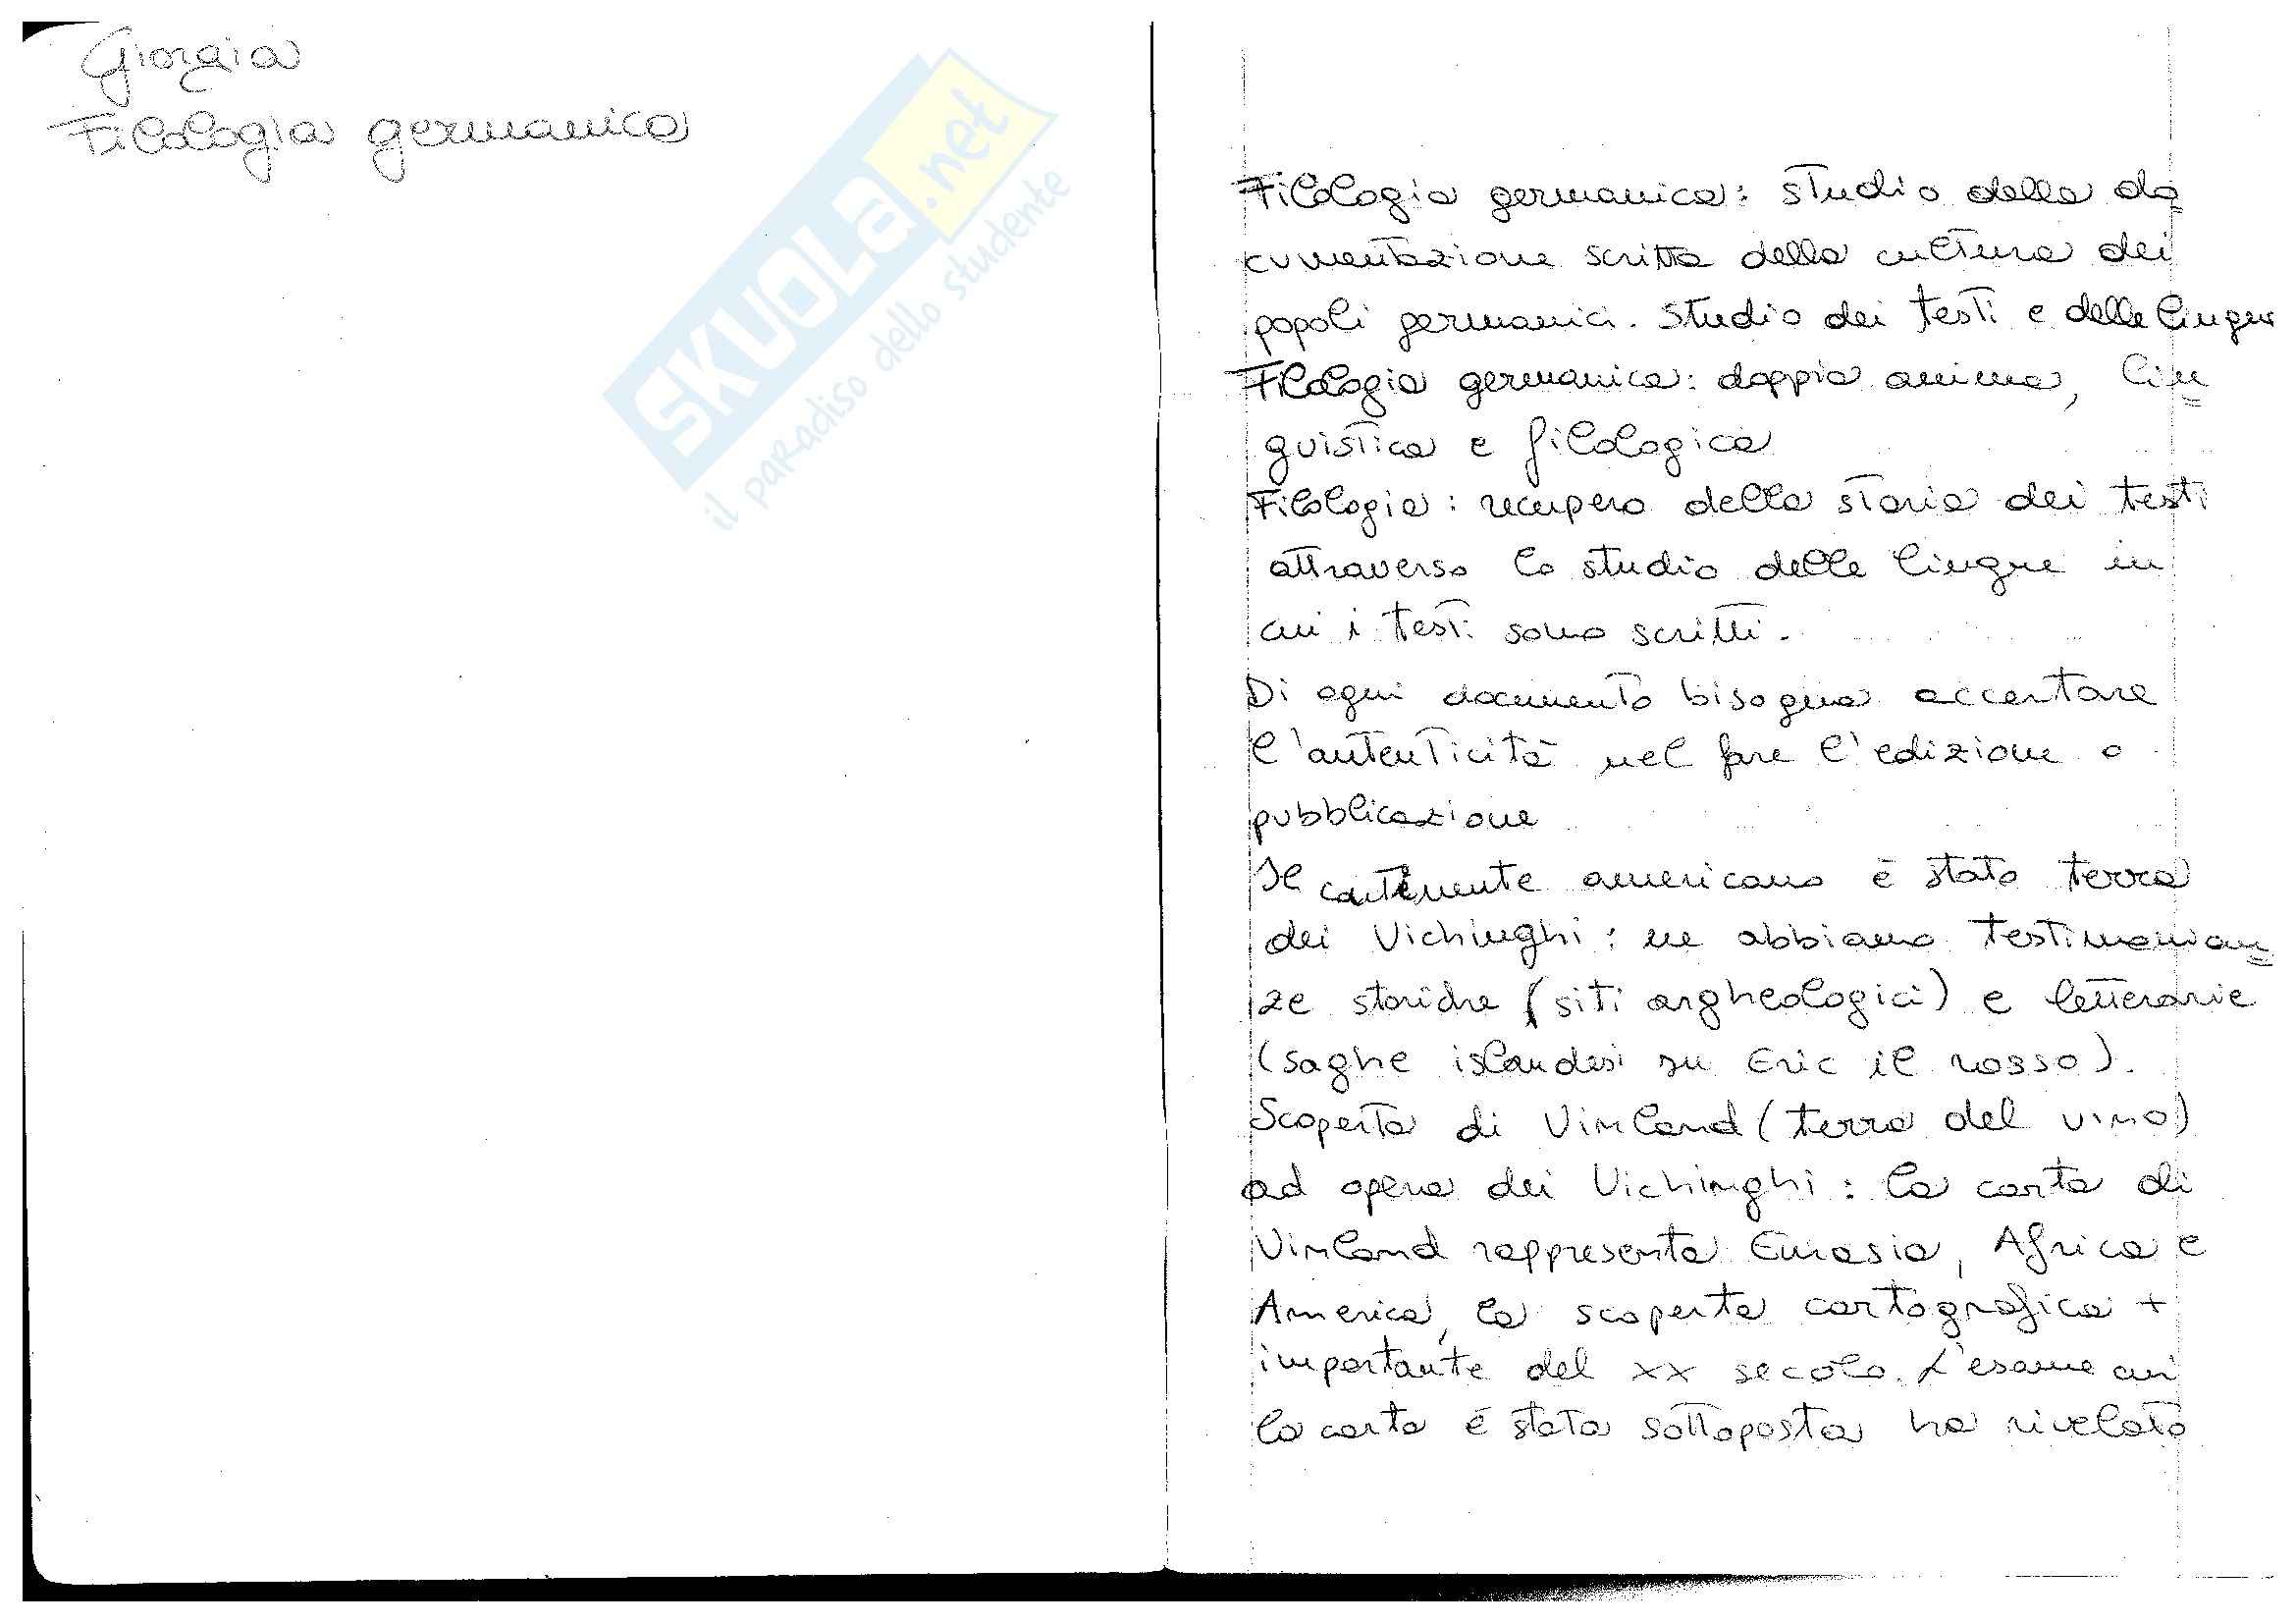 Giorgia
Filologia germanica
SKUOLA.net
il paradiso dello studente
Filologia germanica: studio della do
cumentazione scritta della cultura dei
popoli germanici. Studio dei testi e delle lingue
Filologia germanica: doppia anima, lin
guistica e filologica
Filologia: recupero della storia dei testi
attraverso lo studio delle lingue in
cui i testi sono scritti.
Di ogni documento bisogna accertare
l'autenticità nel fare l'edizione o
pubblicazione
Il continente americano è stato terra
dei Vichinghi: ne abbiamo testimonian
ze storiche (siti argheologici) e letterarie
(saghe islandesi su Eric il rosso).
Scoperta di Vinland (terra del vino)
ad opera dei Vichinghi: la carta di
Vinland rappresenta Eurasia, Africa e
America, la scoperta cartografica +
importante del XX secolo. L'esame cui
la carta è stata sottoposta ha rivelato